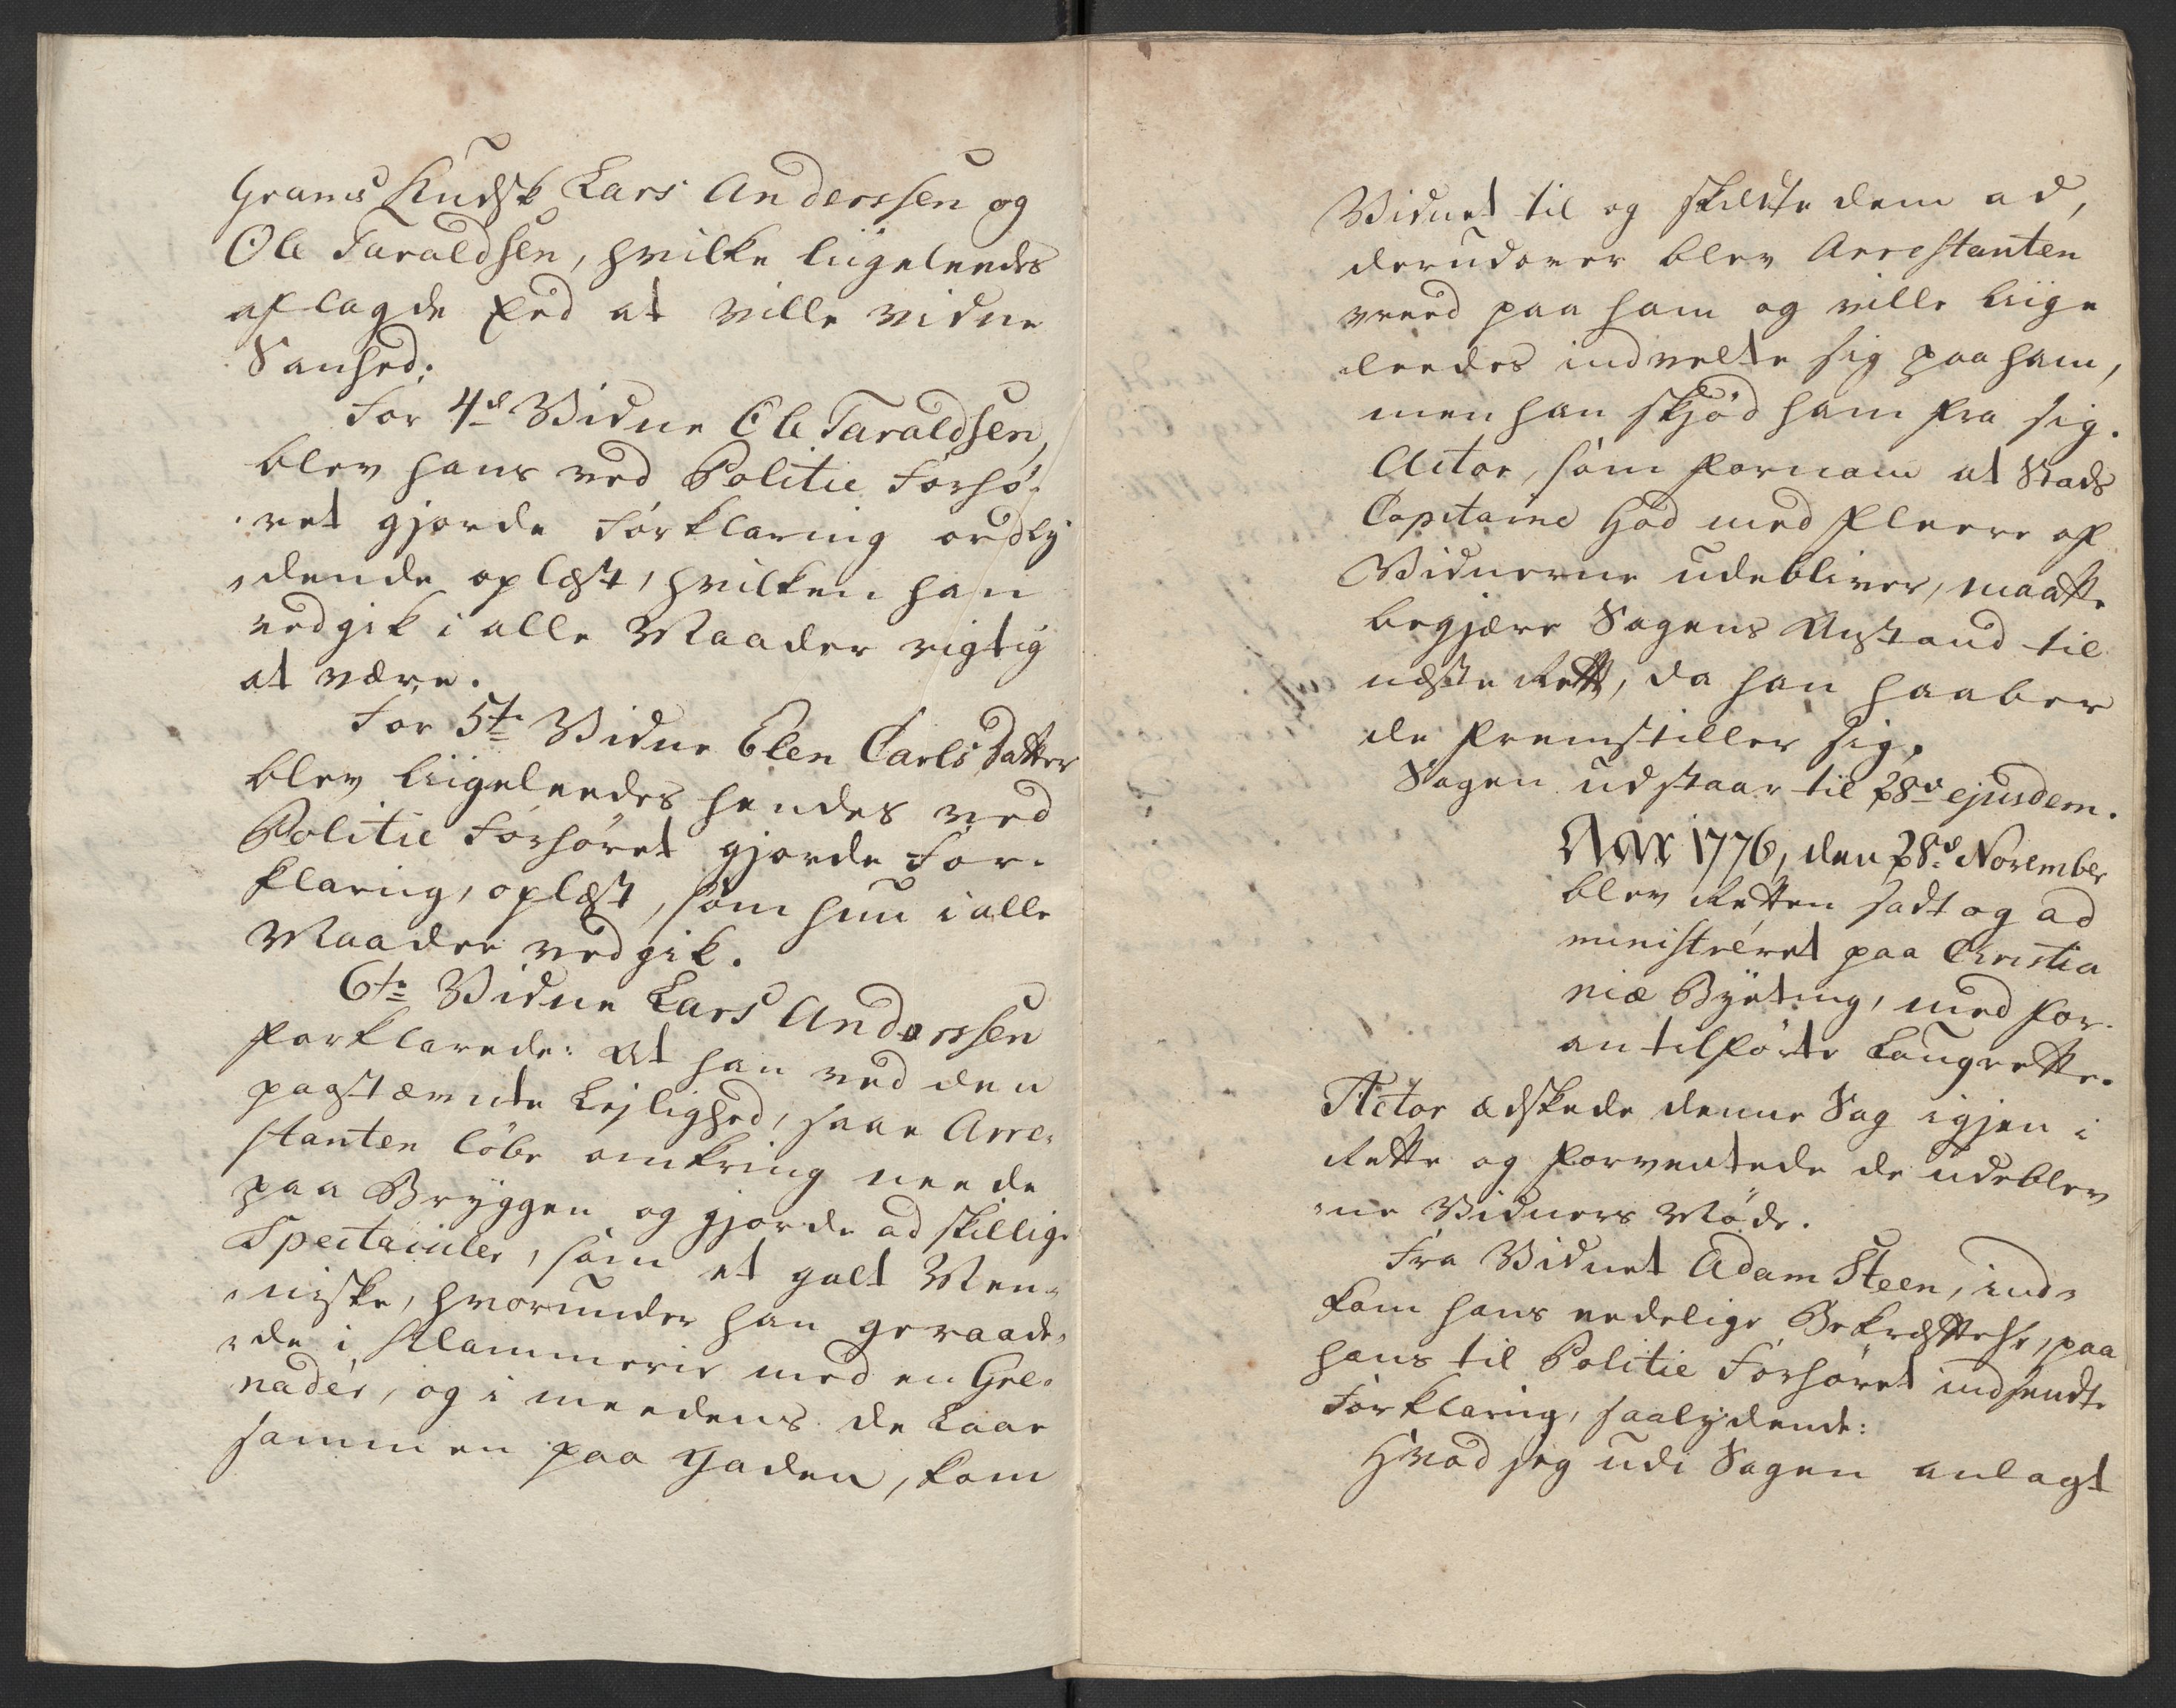 Grams Kudsk Lars Anderssen og
Ole Taraldsen, hvilke liigeleedes
aflagde Eed at ville vidne
Sanhed:
For 4d Vidne Ole Taraldsen,
blev hans ved Politie Forhø-
ret gjorde Forklaring ordly
dende oplæst, hvilken han
vedgik i alle Maader rigtig
at være.
For 5te Vidne Elen Carlsdatter
blev liigeleedes hendes ved
Politie Forhøret gjorde For-
klaring, oplæst, som hun i alle
Maader vedgik.
6te Vidne Lars Anderssen
forklarede: at han ved den
paastævnte Lejlighed, saae Arre-
stanten løbe omkring neede
paa Bryggen og gjorde adskillige
Spectaculer, som et galt Men-
niske, hvorunder han geraade-
de i Klammerie med en Gre-
nadér, og i meedens de laae
sammen paa Gaden, kom
Vidnet til og skildte dem ad,
derudover blev Arrestanten
vreed paa ham og ville liige
leedes indvelte sig paa ham,
men han skjød ham fra sig.
Actor, som fornam at Stads
Capitaine Hød med fleere af
Vidnerne udebliver, maatte
begjære Sagens Anstand til
næste Rætt, da han haaber
de fremstiller sig.
Sagen udstaar til 28d ejusdem.
Anno 1776, den 28d November
blev Retten sadt og ad
ministréret paa Christia
niæ Byeting, med for-
an tilførte Laugrette.
Actor ædskede denne Sag igjen i
Rette og forventede de udeblev
ne Vidners Møde.
Fra Vidnet Adam Steen, ind-
kom hans eedelige Bekræftelse, paa
hans til Politie Forhøret indsendte
Forklaring, saalydende:
Hvad jeg udi Sagen anlagt